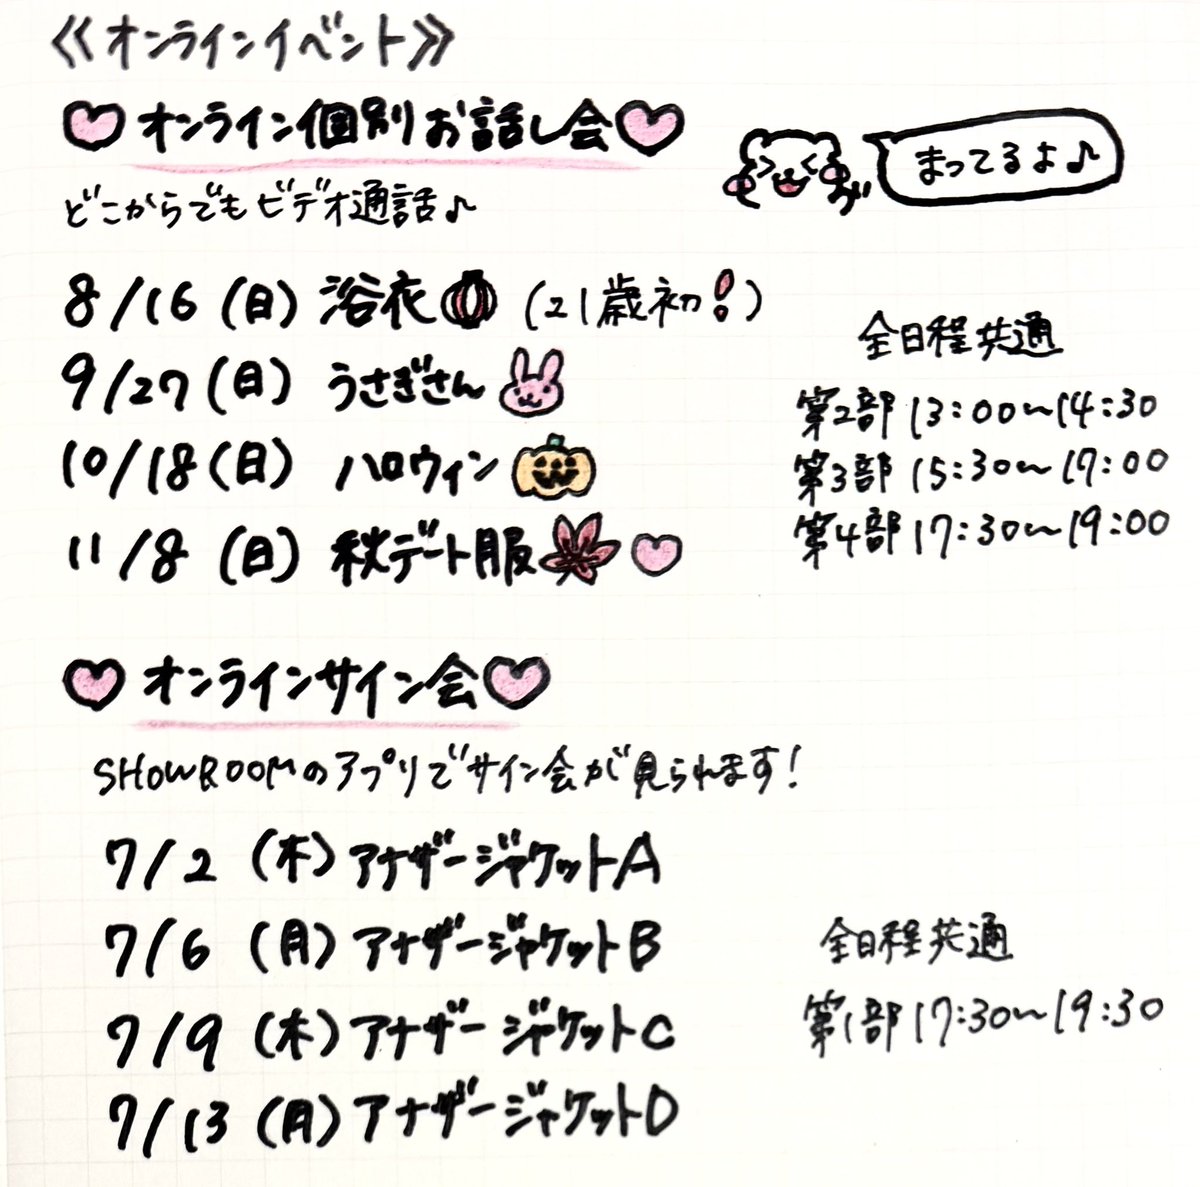 《オンラインイベント》
オンライン個別お話し会
どこからでもビデオ通話♪
まってるよ♪
8/16(日) 浴衣 (21歳初!)
9/27(日) うさぎさん
10/18(日) ハロウィン
11/8(日) 秋デート服
全日程共通
第2部 13:00〜14:30
第3部 15:30〜17:00
第4部 17:30〜19:00
オンラインサイン会
SHOWROOMのアプリでサイン会が見られます!
7/2(木) アナザージャケットA
7/6(月) アナザージャケットB
7/9(木) アナザージャケットC
7/13(月) アナザージャケットD
全日程共通
第1部 17:30〜19:30